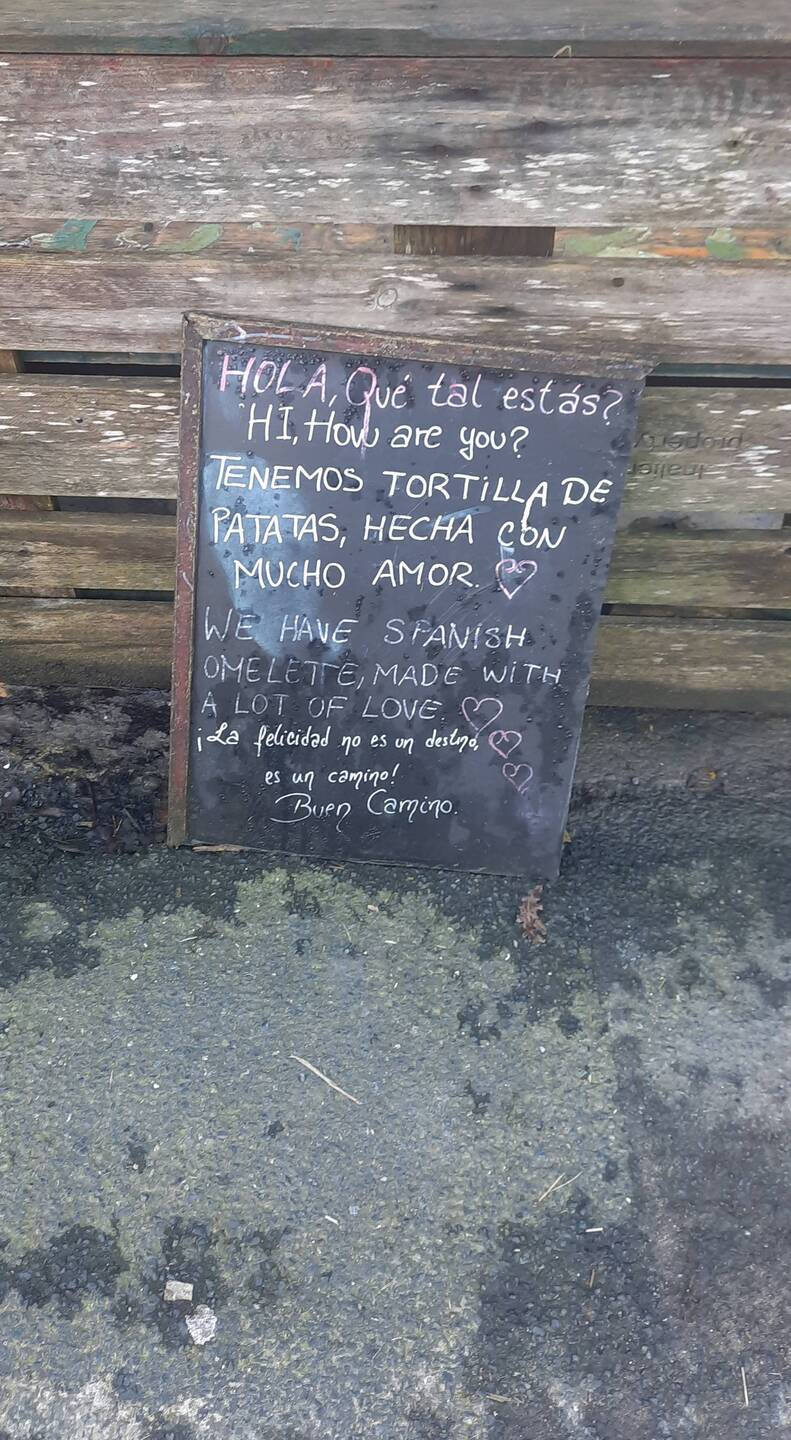 HOLA, Qué tal estás?
HI, How are you?
TENEMOS TORTILLA DE
PATATAS, HECHA CON
MUCHO AMOR.
WE HAVE SPANISH
OMELETTE, MADE WITH
A LOT OF LOVE
¡La felicidad no es un destino,
es un camino!
Buen Camino.